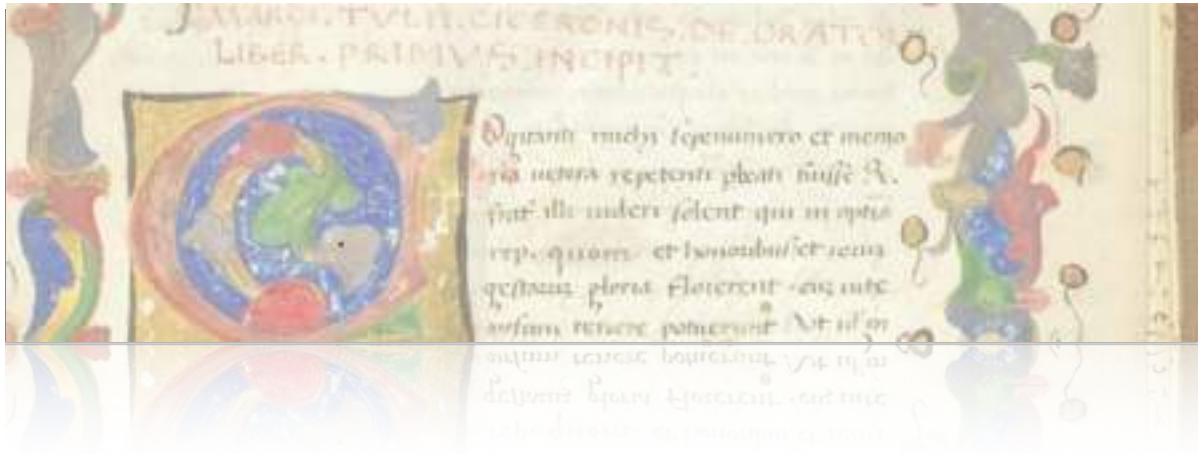 MARCI.TVLII.CICERONIS.DE.ORATOR
LIBER.PRIMVS.INCIPIT.
michi sepenumero et memo
ria uetera repetenti fuisse Q.
illi uideri solent qui in optia
rep. quom et honoribus et
gloria florerent uite
cursum tenere potuerunt Vt ul' in